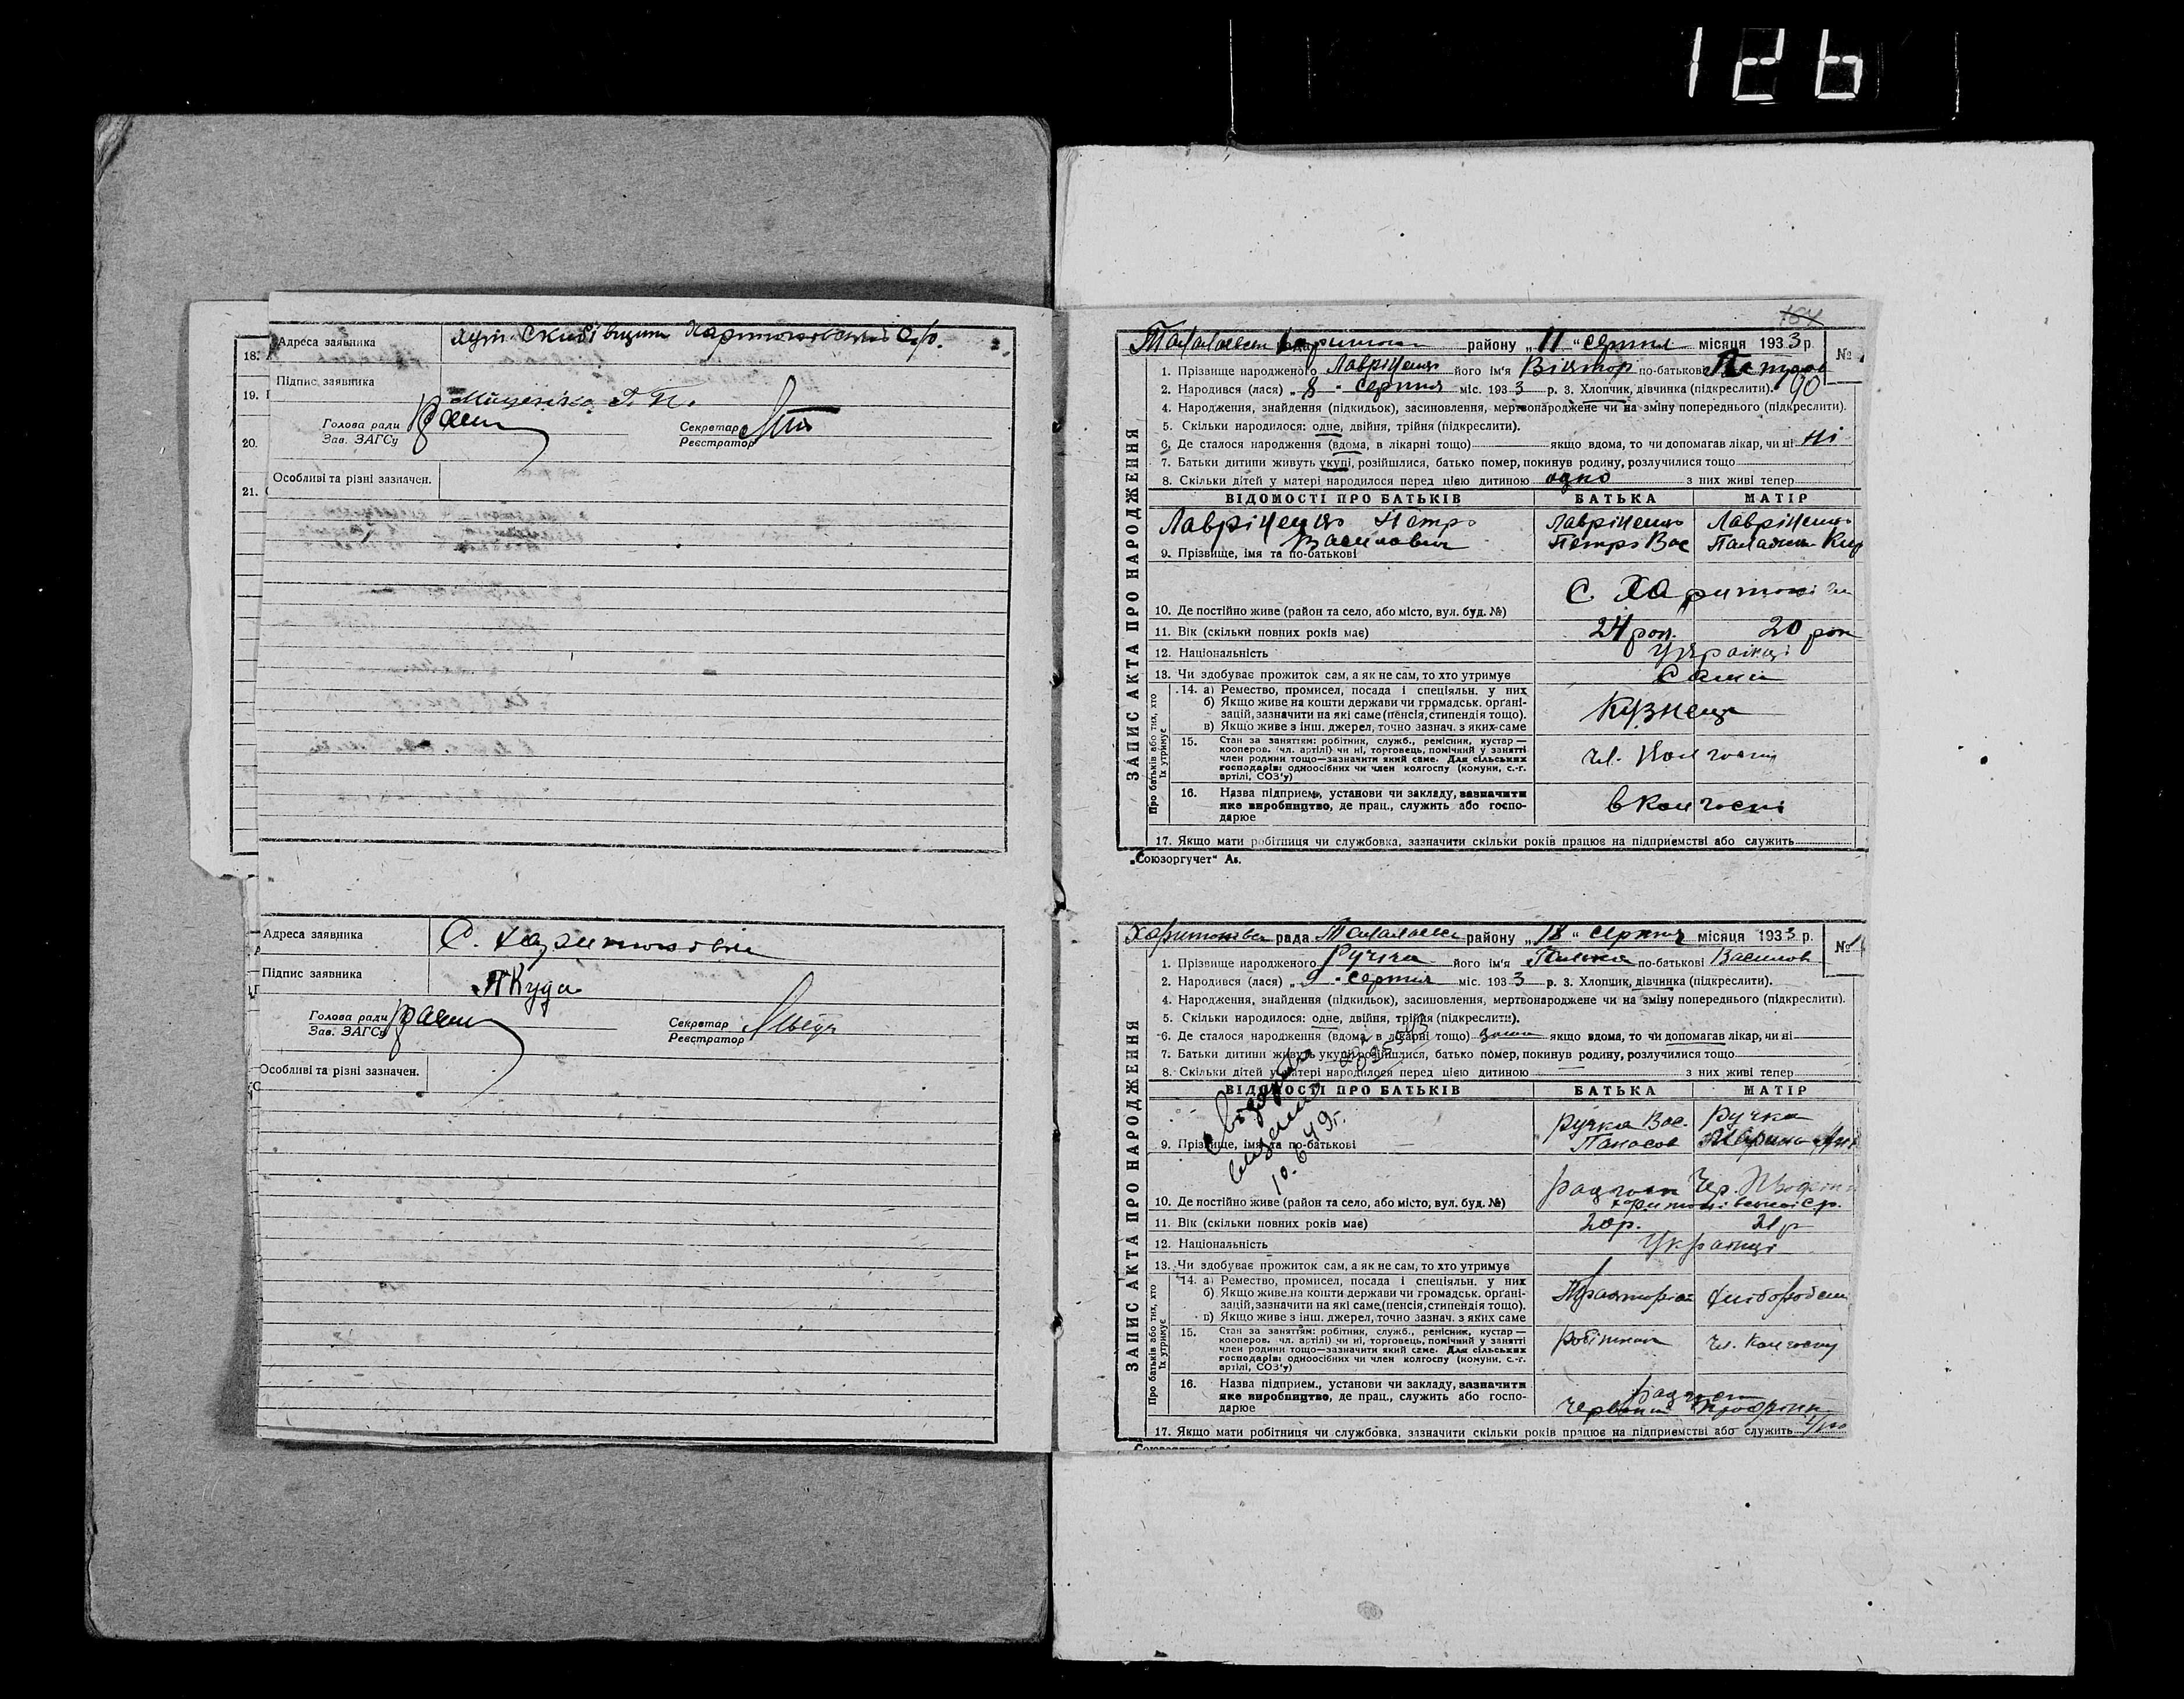 126
18.
19.
20.
21.
Адреса заявника хут. Скибівщина Харитонівської с/р.
Підпис заявника
Міщенко Г. П.
Голова ради
Зав. ЗАГСу
Секретар
Реєстратор
Особливі та різні зазначен.
Адреса заявника С. Харитонівка
Підпис заявника
Голова ради
Зав. ЗАГСу
Секретар
Реєстратор
Особливі та різні зазначен.
184
ЗАПИС АКТА ПРО НАРОДЖЕННЯ
Талалаевськ району „11“ серпня місяця 1933 р. №
1. Прізвище народженого Лавріненко його ім'я Віктор по-батькові Петров
2. Народився (лася) „8 - серпня міс. 1933 р. 3. Хлопчик, дівчинка (підкреслити). 90
4. Народження, знайдення (підкидьок), засиновлення, мертвонароджене чи на зміну попереднього (підкреслити).
5. Скільки народилося: одне, двійня, трійня (підкреслити).
6. Де сталося народження (вдома, в лікарні тощо) якщо вдома, то чи допомагав лікар, чи ні Ні
7. Батьки дитини живуть укупі, розійшлися, батько помер, покинув родину, розлучилися тощо
8. Скільки дітей у матері народилося перед цією дитиною одно з них живі тепер
ВІДОМОСТІ ПРО БАТЬКІВ БАТЬКА МАТІР
Лавріненко Петро Лавріненко Лавріненко
Василович Петро Вас
9. Прізвище, імя та по-батькові
С. Харитонівка
10. Де постійно живе (район та село, або місто, вул. буд. №)
11. Вік (скільки повних років має) 24 рок. 20 рок
12. Національність Українці
13. Чи здобуває прожиток сам, а як не сам, то хто утримує Сами
Про батьків або тих, хто їх утримує
14. а) Ремество, промисел, посада і спеціяльн. у них
б) Якщо живе на кошти держави чи громадськ. органі-
зацій, зазначити на які саме (пенсія, стипендія тощо). Кузнець
в) Якщо живе з інш. джерел, точно зазнач. з яких-саме
15. Стан за заняттям: робітник, служб., ремісник, кустар —
кооперов. (чл. артілі) чи ні, торговець, помічний у занятті
член родини тощо—зазначити який саме. Для сільських чл. Колгоспу
господарів: одноосібних чи член колгоспу (комуни, с.-г.
артілі, СОЗ'у)
16. Назва підприєм., установи чи закладу, зазначити
яке виробництво, де прац., служить або госпо- в Колгоспі
дарює
17. Якщо мати робітниця чи службовка, зазначити скільки років працює на підприємстві або служить
„Союзоргучет“
ЗАПИС АКТА ПРО НАРОДЖЕННЯ
Харитонівка рада Талалаевськ району „18“ серпня місяця 1933 р. №
1. Прізвище народженого Ручка його ім'я по-батькові Василов
2. Народився (лася) „9 - серпня міс. 1933 р. 3. Хлопчик, дівчинка (підкреслити).
4. Народження, знайдення (підкидьок), засиновлення, мертвонароджене чи на зміну попереднього (підкреслити).
5. Скільки народилося: одне, двійня, трійня (підкреслити).
6. Де сталося народження (вдома, в лікарні тощо) якщо вдома, то чи допомагав лікар, чи ні
7. Батьки дитини живуть укупі, розійшлися, батько помер, покинув родину, розлучилися тощо
8. Скільки дітей у матері народилося перед цією дитиною з них живі тепер
10.6 49г.
ВІДОМОСТІ ПРО БАТЬКІВ БАТЬКА МАТІР
Ручка Вас. Ручка
Панасов
9. Прізвище, імя та по-батькові
радгосп Чер. Профінт
10. Де постійно живе (район та село, або місто, вул. буд. №) Харитонівської с.р.
11. Вік (скільки повних років має) 20р. 21 р
12. Національність Українці
13. Чи здобуває прожиток сам, а як не сам, то хто утримує
Про батьків або тих, хто їх утримує
14. а) Ремество, промисел, посада і спеціяльн. у них
б) Якщо живе на кошти держави чи громадськ. органі- Тракторист хлібороб
зацій, зазначити на які саме (пенсія, стипендія тощо).
в) Якщо живе з інш. джерел, точно зазнач. з яких саме
15. Стан за заняттям: робітник, служб., ремісник, кустар —
кооперов. чл. артілі) чи ні, торговець, помічний у занятті робітник чл. Колгоспу
член родини тощо—зазначити який саме. Для сільських
господарів: одноосібних чи член колгоспу (комуни, с.-г.
артілі, СОЗ'у)
16. Назва підприєм., установи чи закладу, зазначити
яке виробництво, де прац., служить або госпо- Радгосп
дарює Червоний Профінт
17. Якщо мати робітниця чи службовка, зазначити скільки років працює на підприємстві або служить